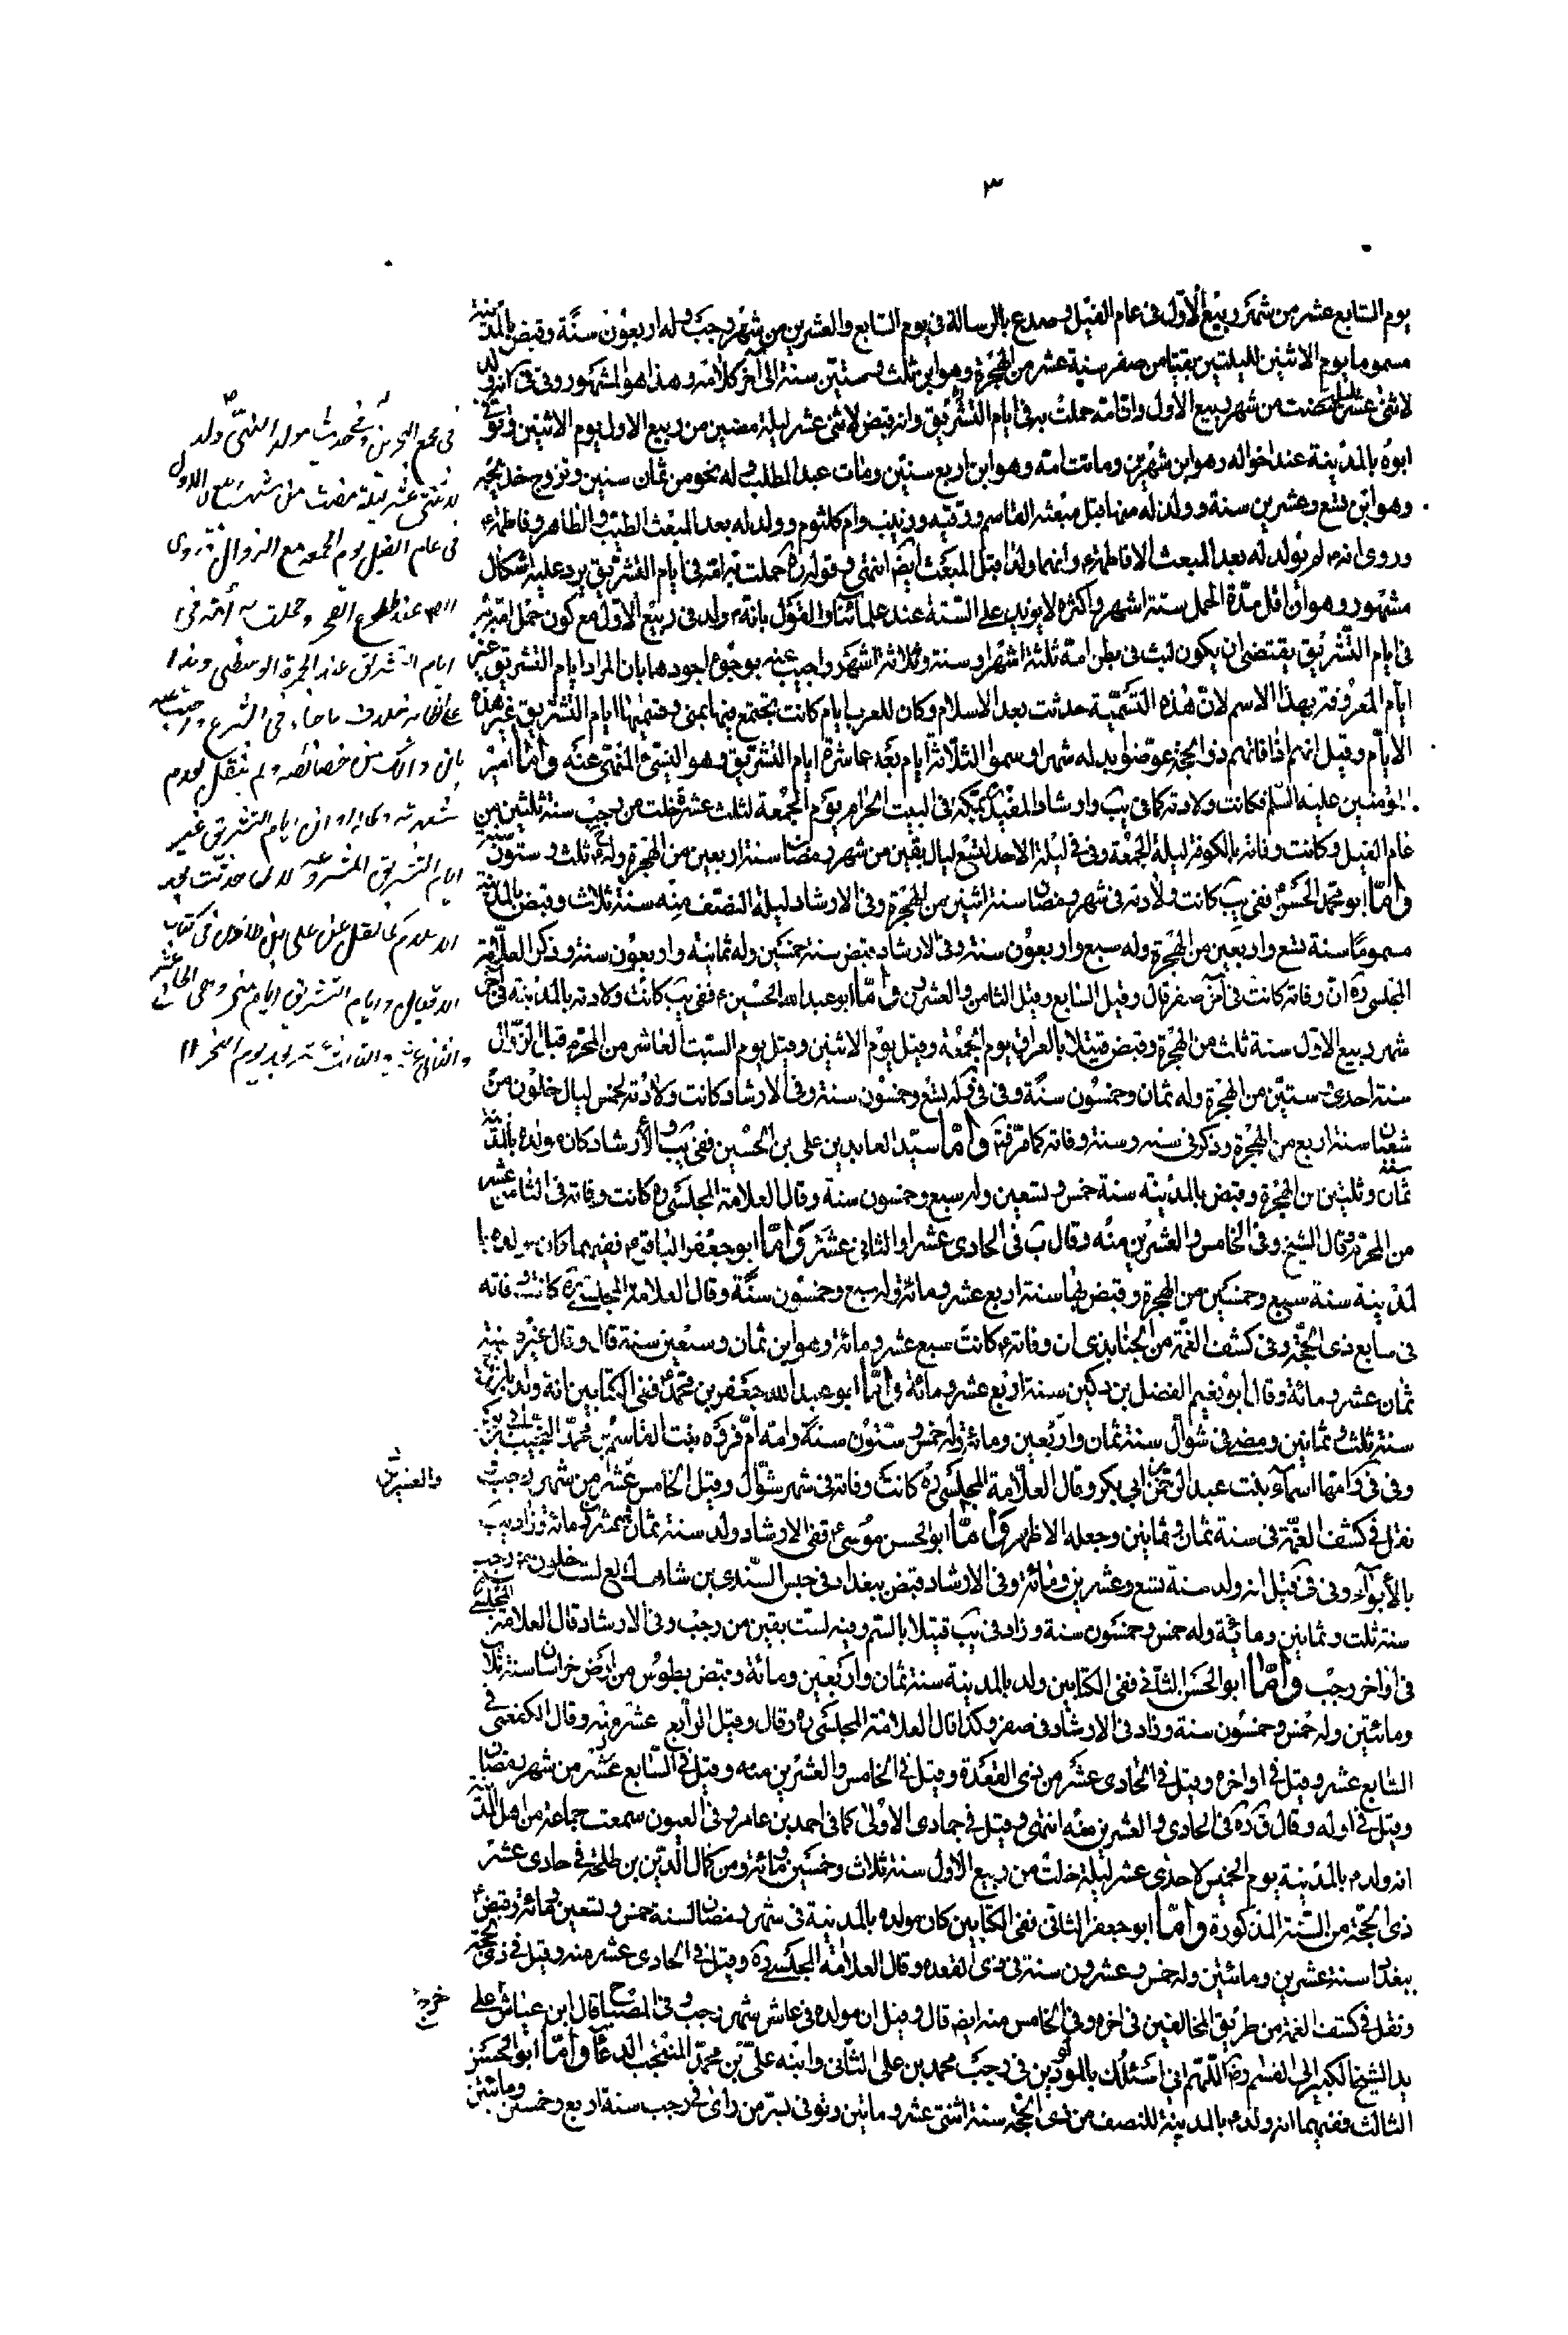 ٣
يوم السابع عشر من شهر ربيع الأول فى عام الفيل وصدع بالرسالة فى يوم السابع والعشرين من شهر رجب وله اربعون سنة وقبض بالمدينة
مسموما يوم الاثنين لليلتين بقيتا من صفر سنة عشر من الهجرة وهو ابن ثلث وستين سنة الى آخر كلامه وهذا هو المشهور وفى فى كانه ولد
لاثنى عشر ليلة مضت من شهر ربيع الاول واقامته حملت به فى ايام التشريق وانه قبض لاثنى عشر ليلة مضين من ربيع الاول يوم الاثنين وتوفى
ابوه بالمدينة عند اخواله وهو ابن شهرين وماتت امه وهو ابن اربع سنين ومات عبد المطلب وله نحو من ثمان سنين وتزوج خديجة
وهو ابن بضع وعشرين سنة وولد له منها قبل مبعثه القاسم ورقيه وزينب وام كلثوم وولد له بعد المبعث الطيب والطاهر وفاطمة
وروى انه لم يولد له بعد المبعث الا فاطمة وانهما ولدا قبل المبعث ايضا انتهى وقوله ره حملت به امه فى ايام التشريق يرد عليه اشكال
مشهور وهو ان اقل مدة الحمل ستة اشهر واكثره لا يزيد على السنة عند علمائنا والقول بانه ولد فى ربيع الاول مع كون حمل امه به
فى ايام التشريق يقتضى ان يكون لبث فى بطن امه ثلثة اشهر او سنة وثلاثة اشهر واجيب عنه بوجوه اجودها بان المراد ايام التشريق غير
ايام المعروفة بهذا الاسم لان هذه التسمية حدثت بعد الاسلام وكان للعرب ايام كانت تجتمع فيها بمنى وتسميها ايام التشريق غير هذه
الايام وقيل انهم اذا فاتهم ذو الحجة عوضوا بدله شهرا وسموا الثلاثة ايام بعد عاشرة ايام التشريق وهو النسىء المنهى عنه واما امير
المؤمنين عليه السلم فكانت ولادته كما فى يب وارشاد المفيد بمكة فى البيت الحرام يوم الجمعة لثلث عشرة خلت من رجب سنة ثلثين من
عام الفيل وكانت وفاته بالكوفة ليلة الجمعة وفى فى ليلة الاحد لتسع ليال بقين من شهر رمضان سنة اربعين من الهجرة وله ثلث وستون سنة
واما ابو محمد الحسن ففى يب كانت ولادته فى شهر رمضان سنة اثنين من الهجرة وفى الارشاد ليلة النصف منه سنة ثلاث وقبض بالمدينة
مسموما سنة تسع واربعين من الهجرة وله سبع واربعون سنة وفى الارشاد قبض سنة خمسين وله ثمانية واربعون سنة وذكر العلامة
المجلسى ره ان وفاته كانت فى آخر صفر قال وقيل السابع وقيل الثامن والعشرين واما ابو عبد الله الحسين ففى يب كانت ولادته بالمدينة فى آخر
شهر ربيع الاول سنة ثلث من الهجرة وقبض قتيلا بالعراق يوم الجمعة وقيل يوم الاثنين وقيل يوم السبت العاشر من المحرم قبل الزوال
سنة احدى وستين من الهجرة وله ثمان وخمسون سنة وفى فى وله تسع وخمسون سنة وفى الارشاد كانت ولادته لخمس ليال خلون من
شعبان سنة اربع من الهجرة وذكر فى سنه وسنة وفاته كما مر فتم واما سيد العابدين على بن الحسين ففى يب والأرشاد كان مولده بالمدينة سنة
ثمان وثلثين من الهجرة وقبض بالمدينة سنة خمس وتسعين وله سبع وخمسون سنة وقال العلامة المجلسى ره كانت وفاته فى الثامن عشر
من المحرم وقال الشيخ وفى الخامس والعشرين منه وقال ب فى الحادى عشر او الثانى عشر واما ابو جعفر الباقر ففيهما كان مولده با
لمدينة سنة سبع وخمسين من الهجرة وقبض بها سنة اربع عشر ومائة وله سبع وخمسون سنة وقال العلامة المجلسى ره كانت وفاته
فى سابع ذى الحجة وفى كشف الغمة من الجنابذى ان وفاته كانت سبع عشر ومائة وهو ابن ثمان وسبعين سنة قال وقال غيره سنة
ثمان عشر ومائة وقال ابو نعيم الفضل بن دكين سنة اربع عشر ومائة واما ابو عبد الله جعفر بن محمد ففى الكتابين انه ولد بالمدينة
سنة ثلث وثمانين ومضى فى شوال سنة ثمان واربعين ومائة وله خمس وستون سنة وامه ام فروه بنت القاسم بن محمد النجيب بن ابى بكر
وفى فى وامها اسماء بنت عبد الرحمن بن ابى بكر وقال العلامة المجلسى ره كانت وفاته فى شهر شوال وقيل الخامس عشر من شهر رجب
نقل فى كشف الغمة فى سنة ثمان وثمانين وجعله الاظهر واما ابو الحسن موسى ففى الارشاد ولد سنة ثمان وعشرين ومائة وزاد يب
بالأبواء وفى فى قيل انه ولد سنة تسع وعشرين ومائة وفى الارشاد قبض ببغداد فى حبس السندى بن شاهك لست خلون من رجب
سنة ثلث وثمانين ومائة وله خمس وخمسون سنة وزاد فى يب قتيلا بالسم وفيه لست بقين من رجب وفى الارشاد قال العلامة المجلسى
فى اواخر رجب واما ابو الحسن الثانى ففى الكتابين ولد بالمدينة سنة ثمان واربعين ومائة وقبض بطوس من ارض خراسان سنة ثلاث
ومائتين وله خمس وخمسون سنة وزاد فى الارشاد فى صفر وكذا قال العلامة المجلسى ره وقال وقيل الرابع عشر منه وقال الكفعمى فى
السابع عشر وقيل فى اواخره وقيل فى الحادى عشر من ذى القعدة وقيل فى الخامس والعشرين منه وقيل فى السابع عشر من شهر رمضان
وقيل فى اوله وقال ق ره فى الحادى والعشرين منه انتهى وقيل فى جمادى الاولى كما فى احمد بن عامر وفى العيون سمعت جماعة من اهل المدينة
انه ولد بالمدينة يوم الخميس لاحدى عشر ليلة خلت من ربيع الاول سنة ثلاث وخمسين ومائة ومن كمال الدين بن طلحة فى حادى عشر
ذى الحجة من السنة المذكورة واما ابو جعفر الثانى ففى الكتابين كان مولده بالمدينة فى شهر رمضان لسنة خمس وتسعين ومائة وقبض
ببغداد سنة عشرين ومائتين وله خمس وعشرون سنة فى ذى القعدة وقال العلامة المجلسى ره وقيل فى الحادى عشر منه وقيل فى ذى الحجة
ونقل فى كشف الغمة من طريق المخالفين فى اخره وفى الخامس منه ايضا قال وقيل ان مولده فى عاشر شهر رجب وفى المصباح قال ابن عياش خرج على
يد الشيخ الكبير ابى القسم رضى اللهم انى اسئلك بالمولودين فى رجب محمد بن على الثانى وابنه على بن محمد المنتجب الدعاء واما ابو الحسن
الثالث ففيهما انه ولد بالمدينة للنصف من ذى الحجة سنة اثنتى عشر ومائتين وتوفى بسر من راى فى رجب سنة اربع وخمسين ومائتين
فى مجمع البحرين وفى حديث مولد النبى ولد
لاثنتى عشر ليلة مضت من شهر ربيع الاول
فى عام الفيل يوم الجمعه مع الزوال وروى
عند طلوع الفجر وحملت به أمه فى
ايام التشريق عند الجمرة الوسطى وهذا
على ظاهره خلاف ما جاء فى الشرع واجيب عنه
بان ذلك من خصائصه ولم ينقل لعدم
ايام التشريق غير
ايام التشريق المشروعة لانها حدثت بعد
الاسلام كما نقل عن على بن طاوس فى كتاب
الاقبال وايام التشريق ايام منى وهى الحادى عشر
والثانى عشر والثالث عشر بعد يوم النحر ١١
والعشرين
خرج